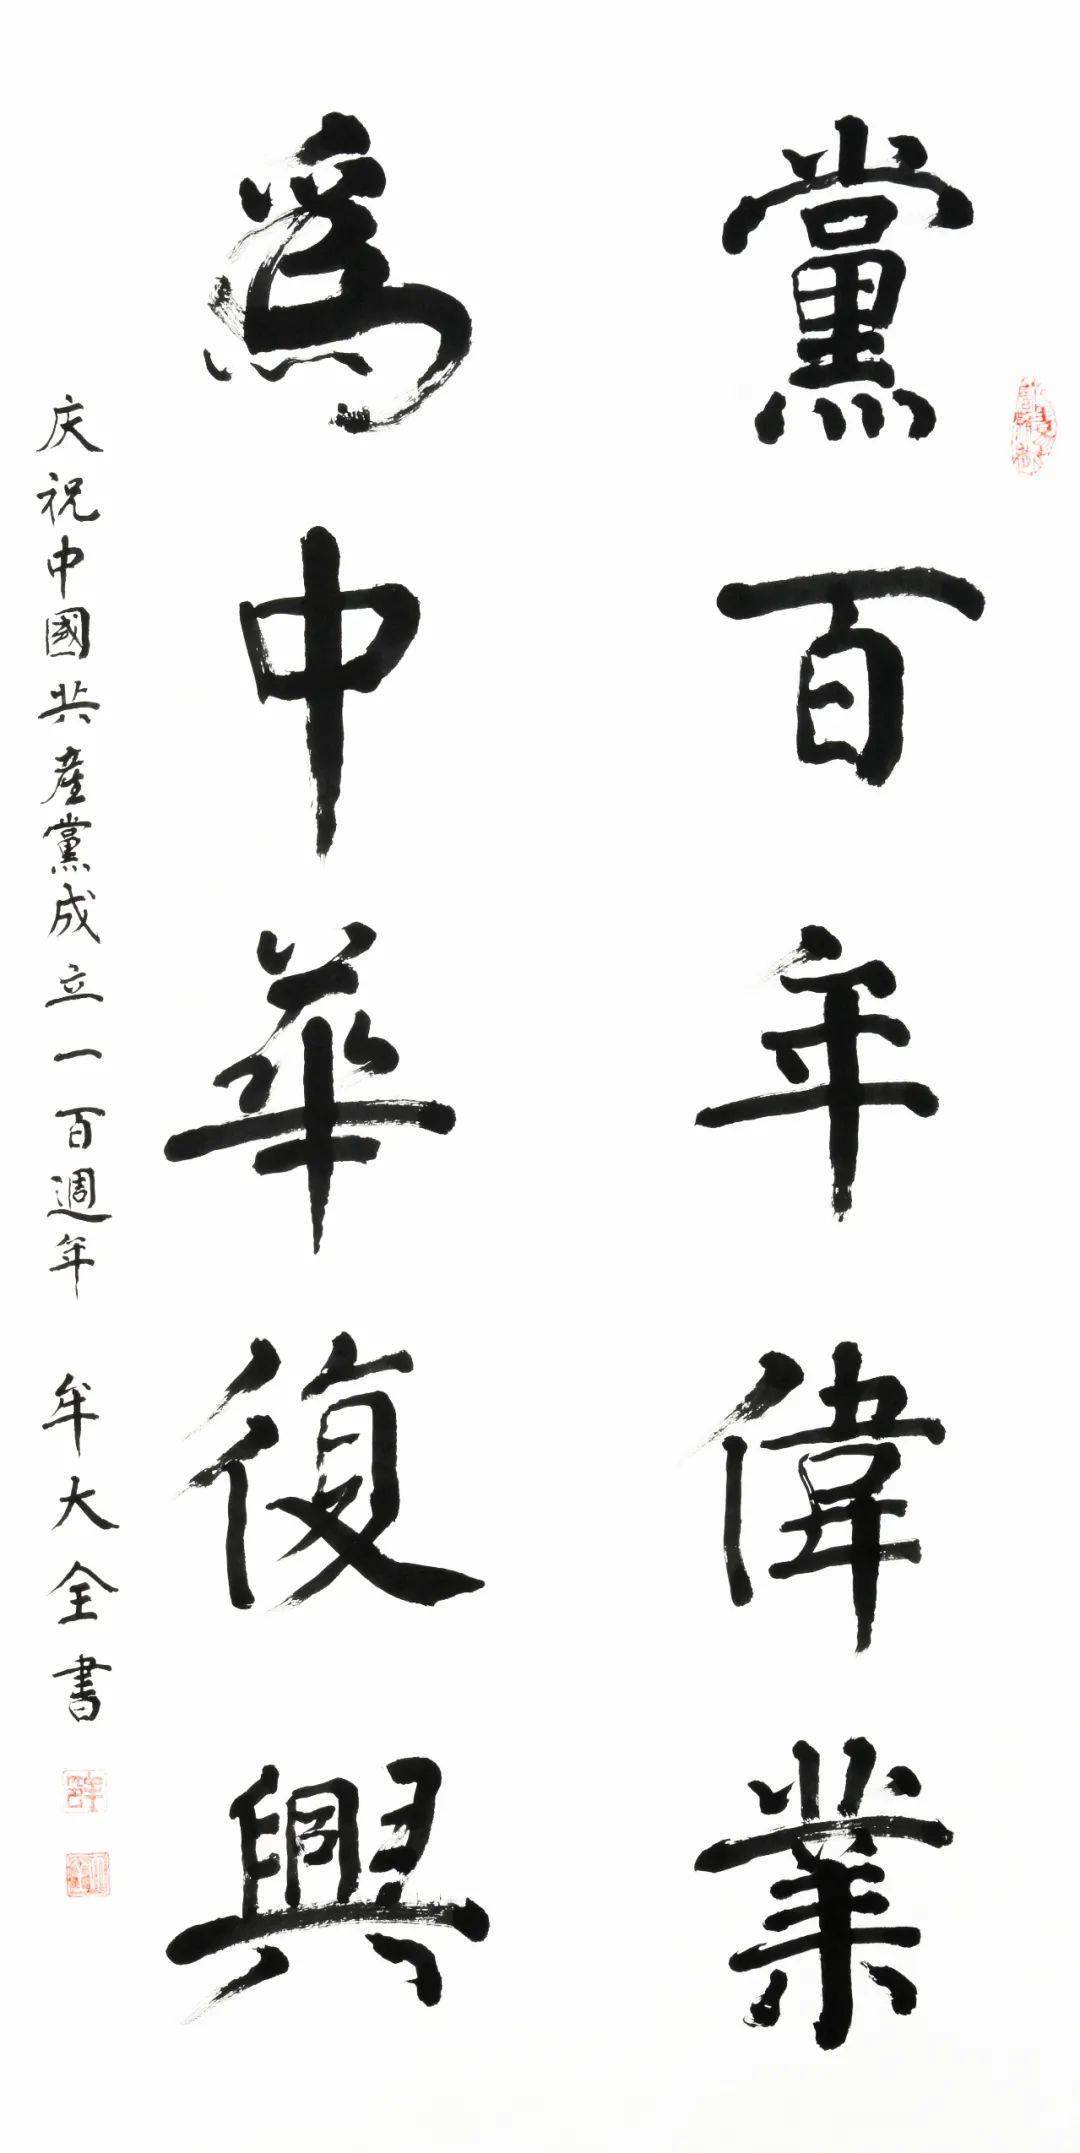 黨百年偉業
爲中華復興
庆祝中國共產黨成立一百週年 牟大全書